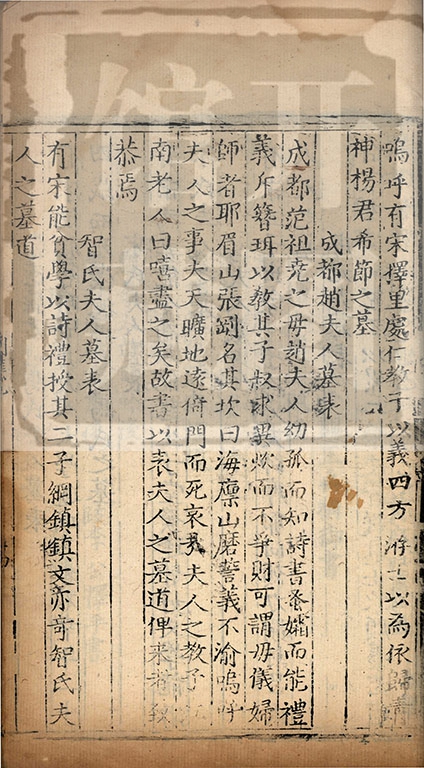 嗚呼有宋擇里處仁教子以義四方游士以為依歸
神楊君希節之墓
成都趙夫人墓表
成都范祖堯之母趙夫人幼孤而知詩書蚤孀而能禮
義斥簪珥以教其子叔求異炊而不爭財可謂母儀婦
師者耶眉山張剛名其坎曰海麋山磨誓義不渝嗚呼
夫人之事夫天曠地遠倚門而死哀哉夫人之教子
南老人曰嘻盡之矣故書以表夫人之墓道俾来者
恭焉
智氏夫人墓表
有宋能貧學以詩禮授其二子綱鎮鎮文亦奇智氏夫
人之墓道